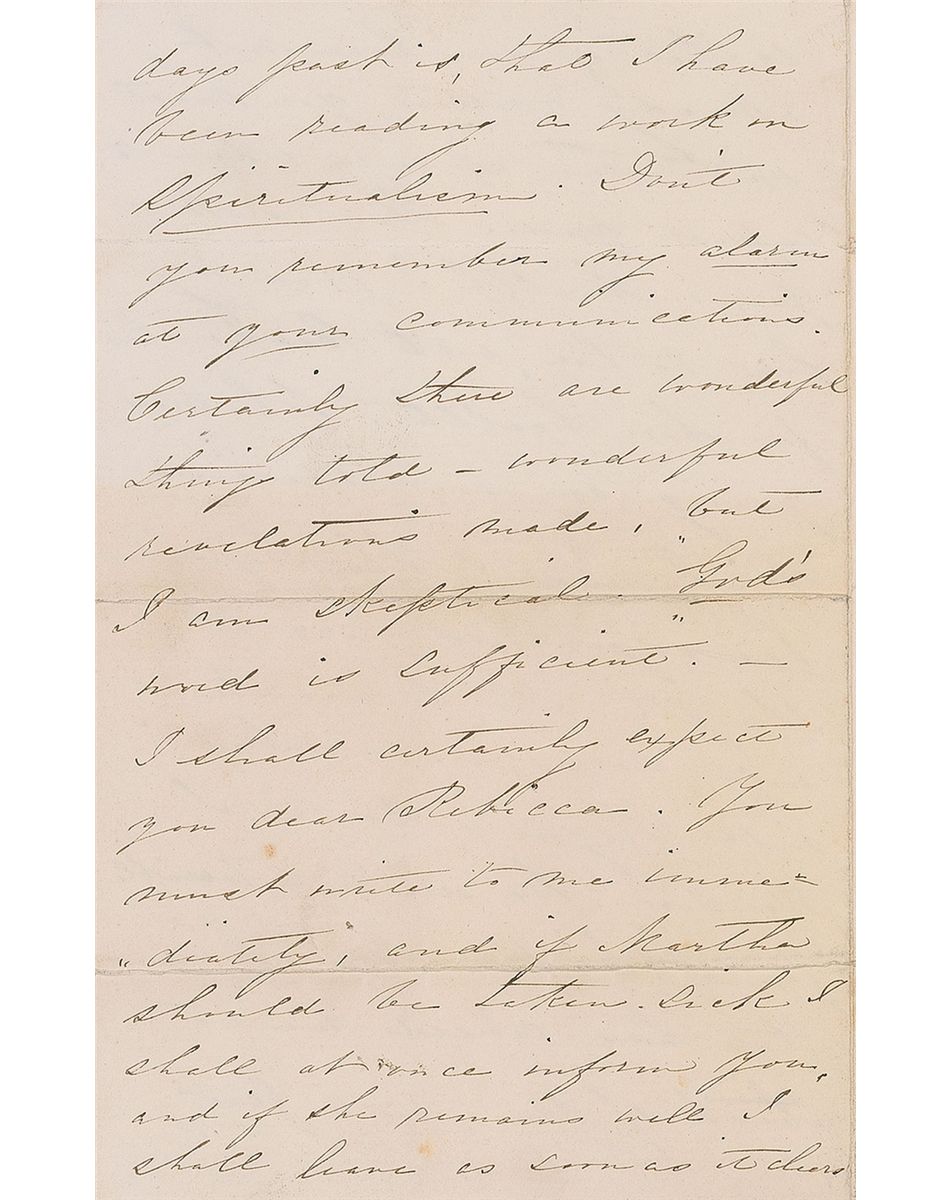 days past is, that I have
been reading a work on
Spiritualism. Don't
you remember my alarm
at your communications.
Certainly there are wonderful
things told – wonderful
revelations made, but
I am skeptical. "God's
word is sufficient". —
I shall certainly expect
you dear Rebecca. You
must write to me imme=
"diately, and if Martha
should be taken sick I
shall at once inform you,
and if she remains well I
shall leave as soon as it clears